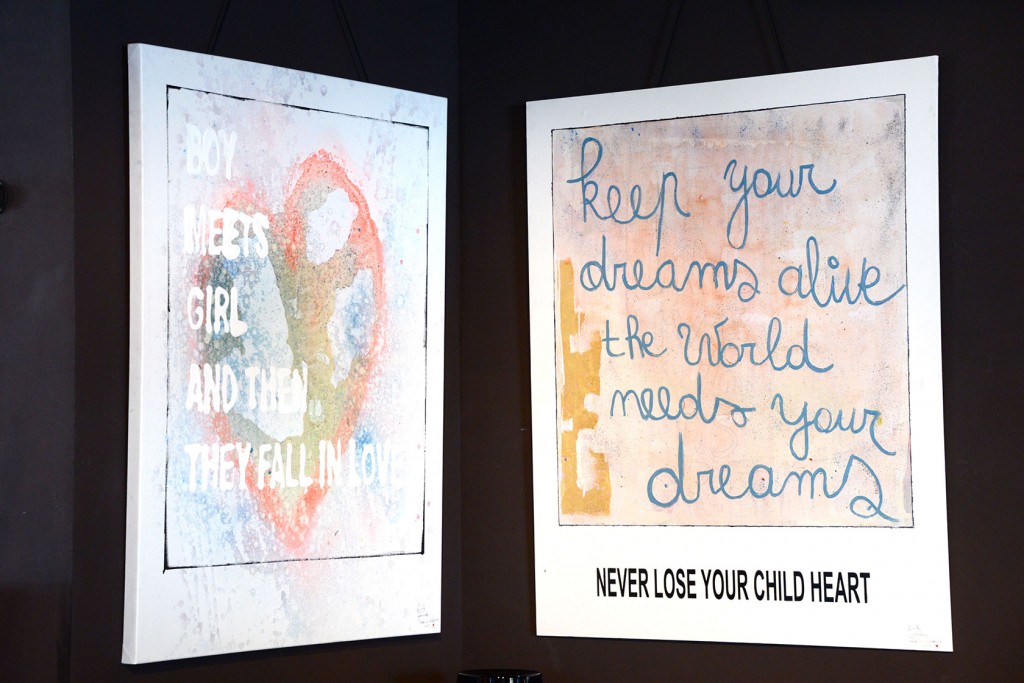 BOY
MEETS
GIRL
AND THEN
THEY FALL IN LOVE
keep your
dreams alive
the World
needs your
dreams
NEVER LOSE YOUR CHILD HEART